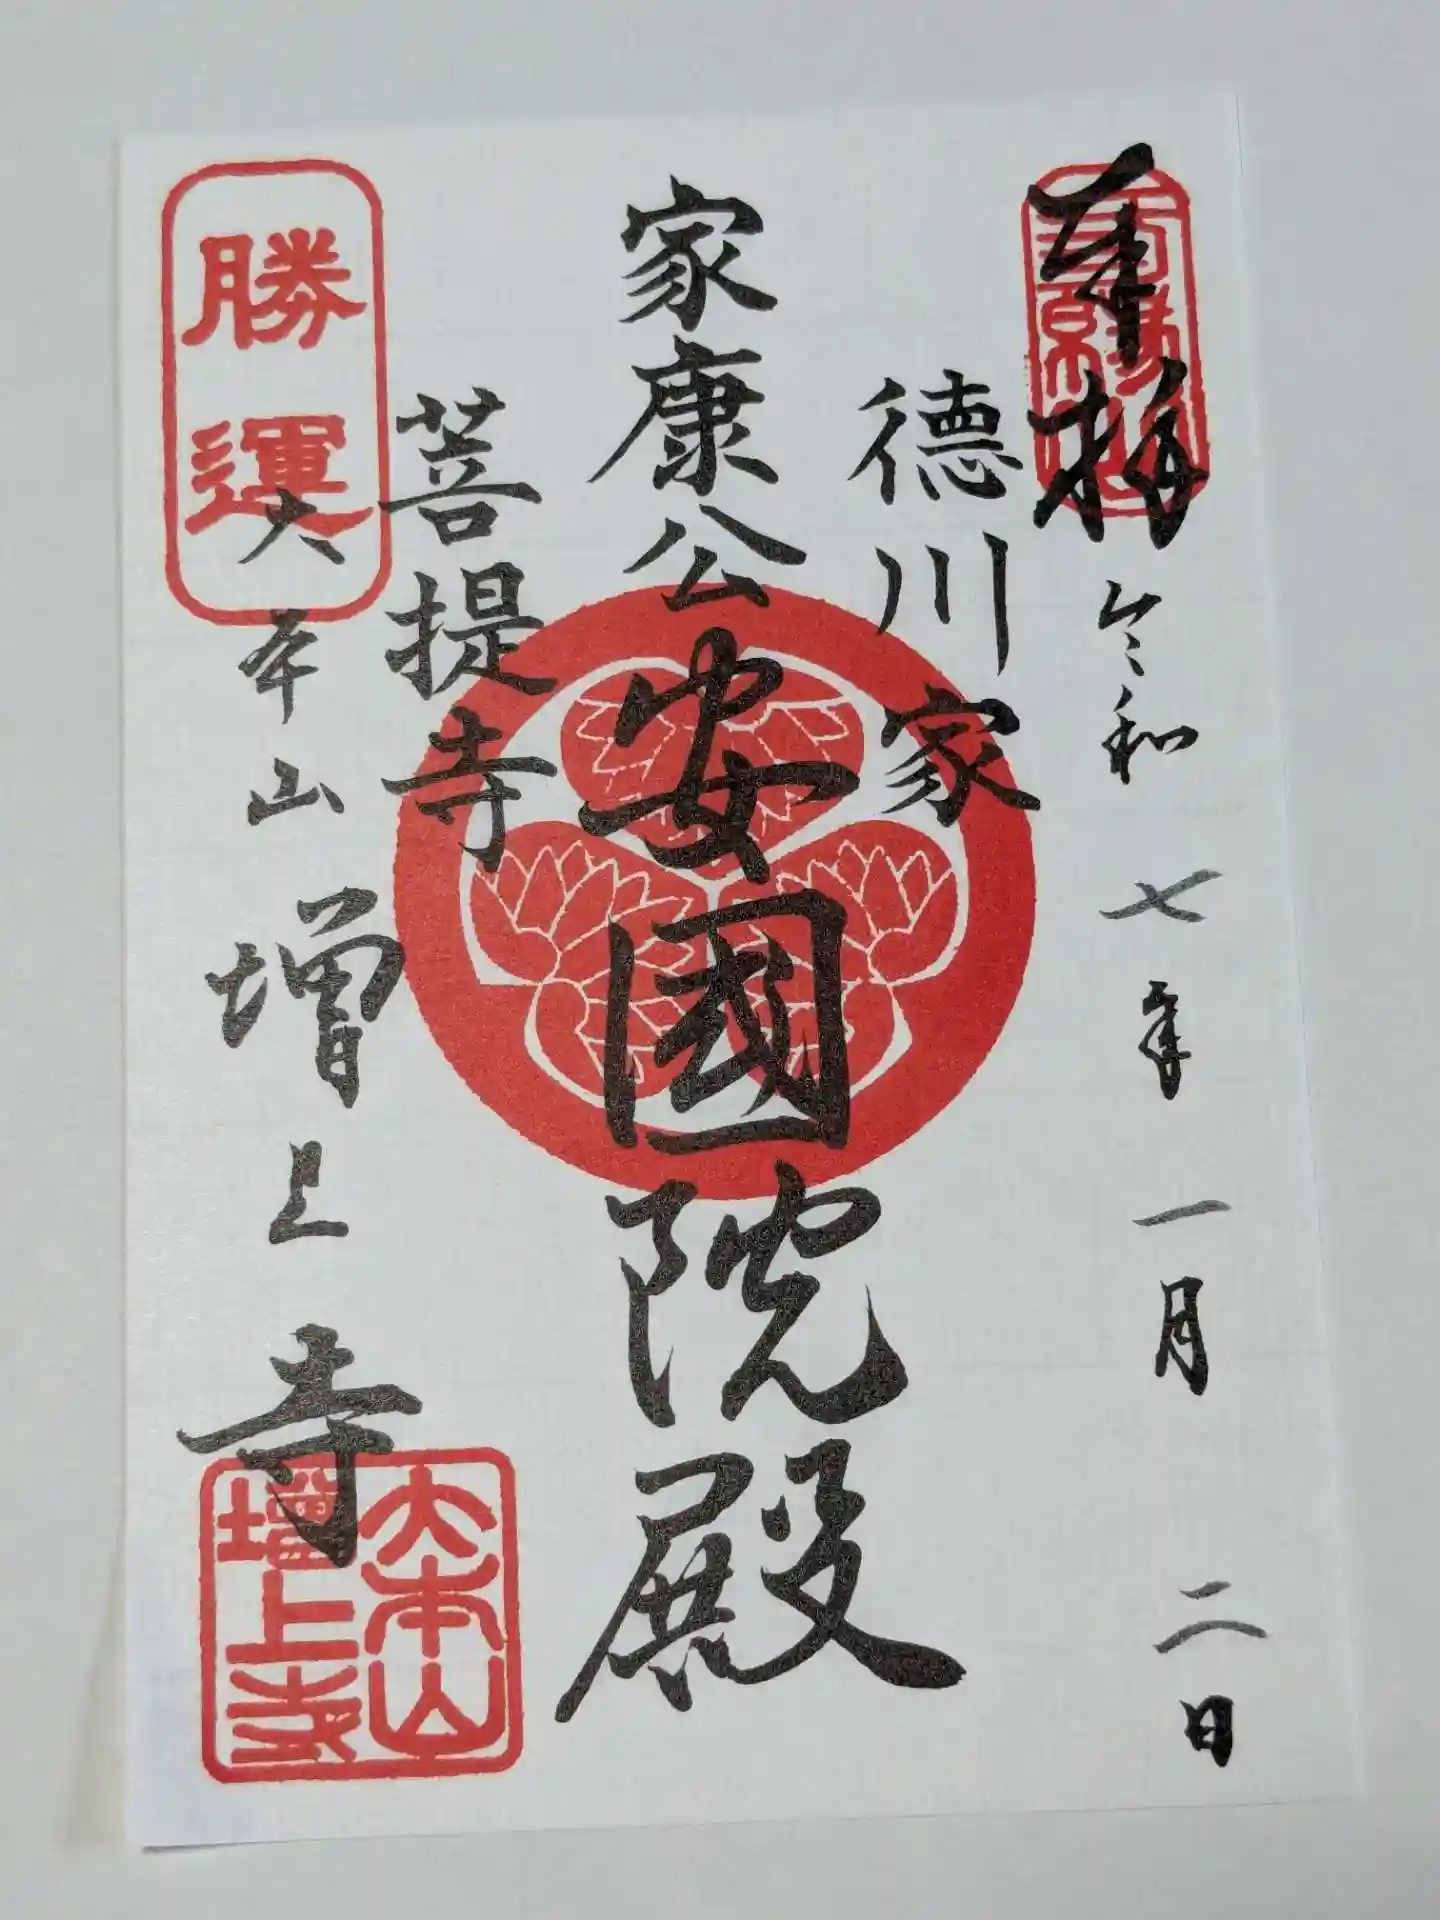 奉拝
令和七年一月二日
徳川家
家康公
安國院殿
菩提寺
勝運
大本山増上寺
大本山
増上寺